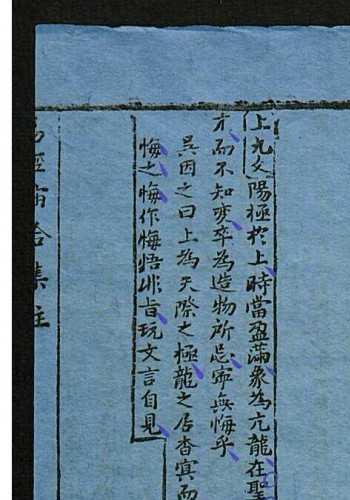 上九爻陽極於上時當盈滿象為亢龍在聖
才而不知變卒為造物所忌寧無悔乎
吳因之曰上為天際之極龍之居杳冥而
悔之悔作悔悟非旨玩文言自見
易經 集註